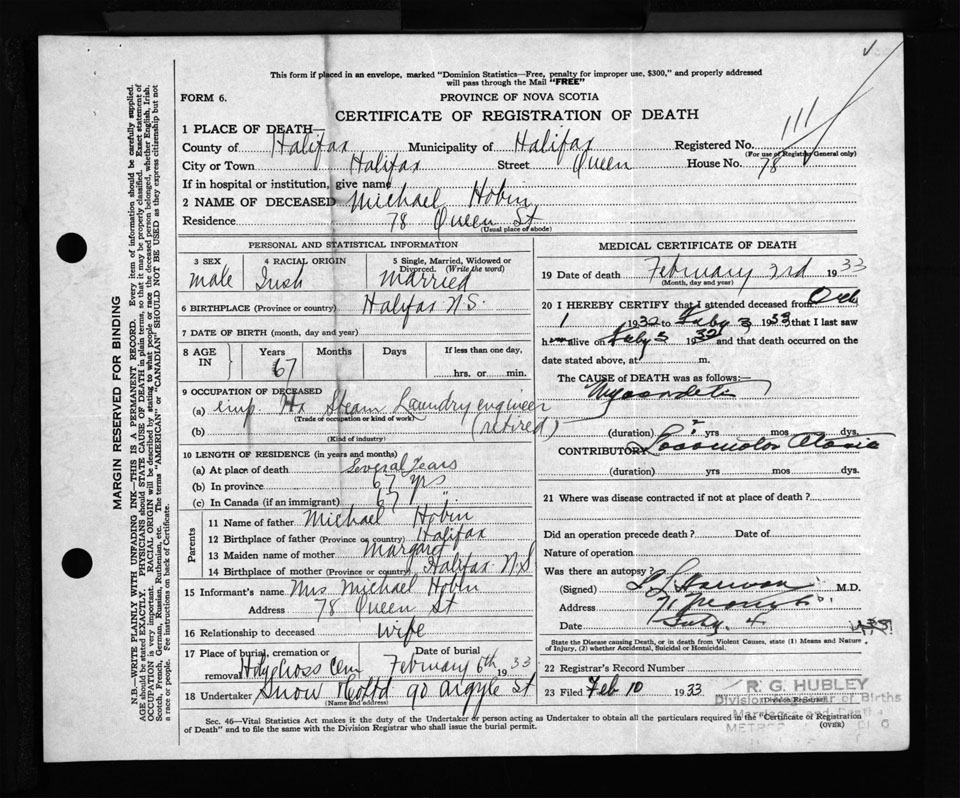 This form if placed in an envelope, marked "Dominion Statistics—Free, penalty for improper use, $300," and properly addressed
will pass through the Mail "FREE"
FORM 6.
PROVINCE OF NOVA SCOTIA
CERTIFICATE OF REGISTRATION OF DEATH
111
1 PLACE OF DEATH—
County of Halifax Municipality of Halifax Registered No.
(For use of Registrar General only)
City or Town Halifax Street Queen House No. 78
If in hospital or institution, give name
2 NAME OF DECEASED Michael Hobin
Residence 78 Queen St
(Usual place of abode)
PERSONAL AND STATISTICAL INFORMATION
3 SEX 4 RACIAL ORIGIN 5 Single, Married, Widowed or
Divorced. (Write the word)
male Irish Married
6 BIRTHPLACE (Province or country) Halifax N.S.
7 DATE OF BIRTH (month, day and year)
8 AGE IN Years Months Days If less than one day,
67 hrs. or min.
9 OCCUPATION OF DECEASED
(a) emp. Hx Steam Laundry engineer
(Trade or occupation or kind of work)
(retired)
(b)
(Kind of industry)
10 LENGTH OF RESIDENCE (in years and months)
(a) At place of death Several Years
(b) In province 67 yrs
(c) In Canada (if an immigrant) 67 "
Parents
11 Name of father Michael Hobin
12 Birthplace of father (Province or country) Halifax
13 Maiden name of mother Margaret
14 Birthplace of mother (Province or country) Halifax N.S
15 Informant's name Mrs Michael Hobin
Address 78 Queen St
16 Relationship to deceased wife
17 Place of burial, cremation or Date of burial
removal Holy Cross Cem February 6th 1933
18 Undertaker Snow & Co Ltd 90 Argyle St
(Name and address)
MEDICAL CERTIFICATE OF DEATH
19 Date of death February 3rd 1933
(Month, day and year)
20 I HEREBY CERTIFY that I attended deceased from
1 1932 to Feby 3 1933 that I last saw
h im alive on Feby 3 1932 and that death occurred on the
date stated above, at m.
The CAUSE of DEATH was as follows:—
Myocarditis
(duration) ? yrs mos dys.
CONTRIBUTORY Locomotor Ataxia
(duration) yrs. mos. dys.
21 Where was disease contracted if not at place of death?
Did an operation precede death? Date of
Nature of operation
Was there an autopsy?
(Signed) M.D.
Address
Date Feby. 4 1933
State the Disease causing Death, or in death from Violent Causes, state (1) Means and Nature
of Injury, (2) whether Accidental, Suicidal or Homicidal.
22 Registrar's Record Number
23 Filed Feb 10 1933
(Division Registrar)
R. G. HUBLEY
Division Registrar of Births
Marriages and Deaths
Sec. 46—Vital Statistics Act makes it the duty of the Undertaker or person acting as Undertaker to obtain all the particulars required in the "Certificate of Registration
of Death" and to file the same with the Division Registrar who shall issue the burial permit.
(OVER)
MARGIN RESERVED FOR BINDING
N.B.—WRITE PLAINLY WITH UNFADING INK—THIS IS A PERMANENT RECORD. Every item of information should be carefully supplied.
AGE should be stated EXACTLY. PHYSICIANS should STATE CAUSE OF DEATH in plain terms, so that it may be properly classified. Exact statement of
OCCUPATION is very important. RACIAL ORIGIN will be described by stating to what people or race the deceased person belonged, whether English, Irish,
Scotch, French, German, Russian, Ruthenian, etc. The terms "AMERICAN" or "CANADIAN" SHOULD NOT BE USED as they express citizenship but not
a race or people. See instructions on back of Certificate.